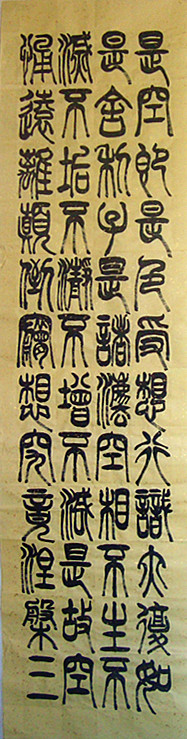 是空即是色受想行識亦復如
是舍利子是諸法空相不生不
滅不垢不淨不增不減是故空
怖遠離顛倒夢想究竟涅槃三